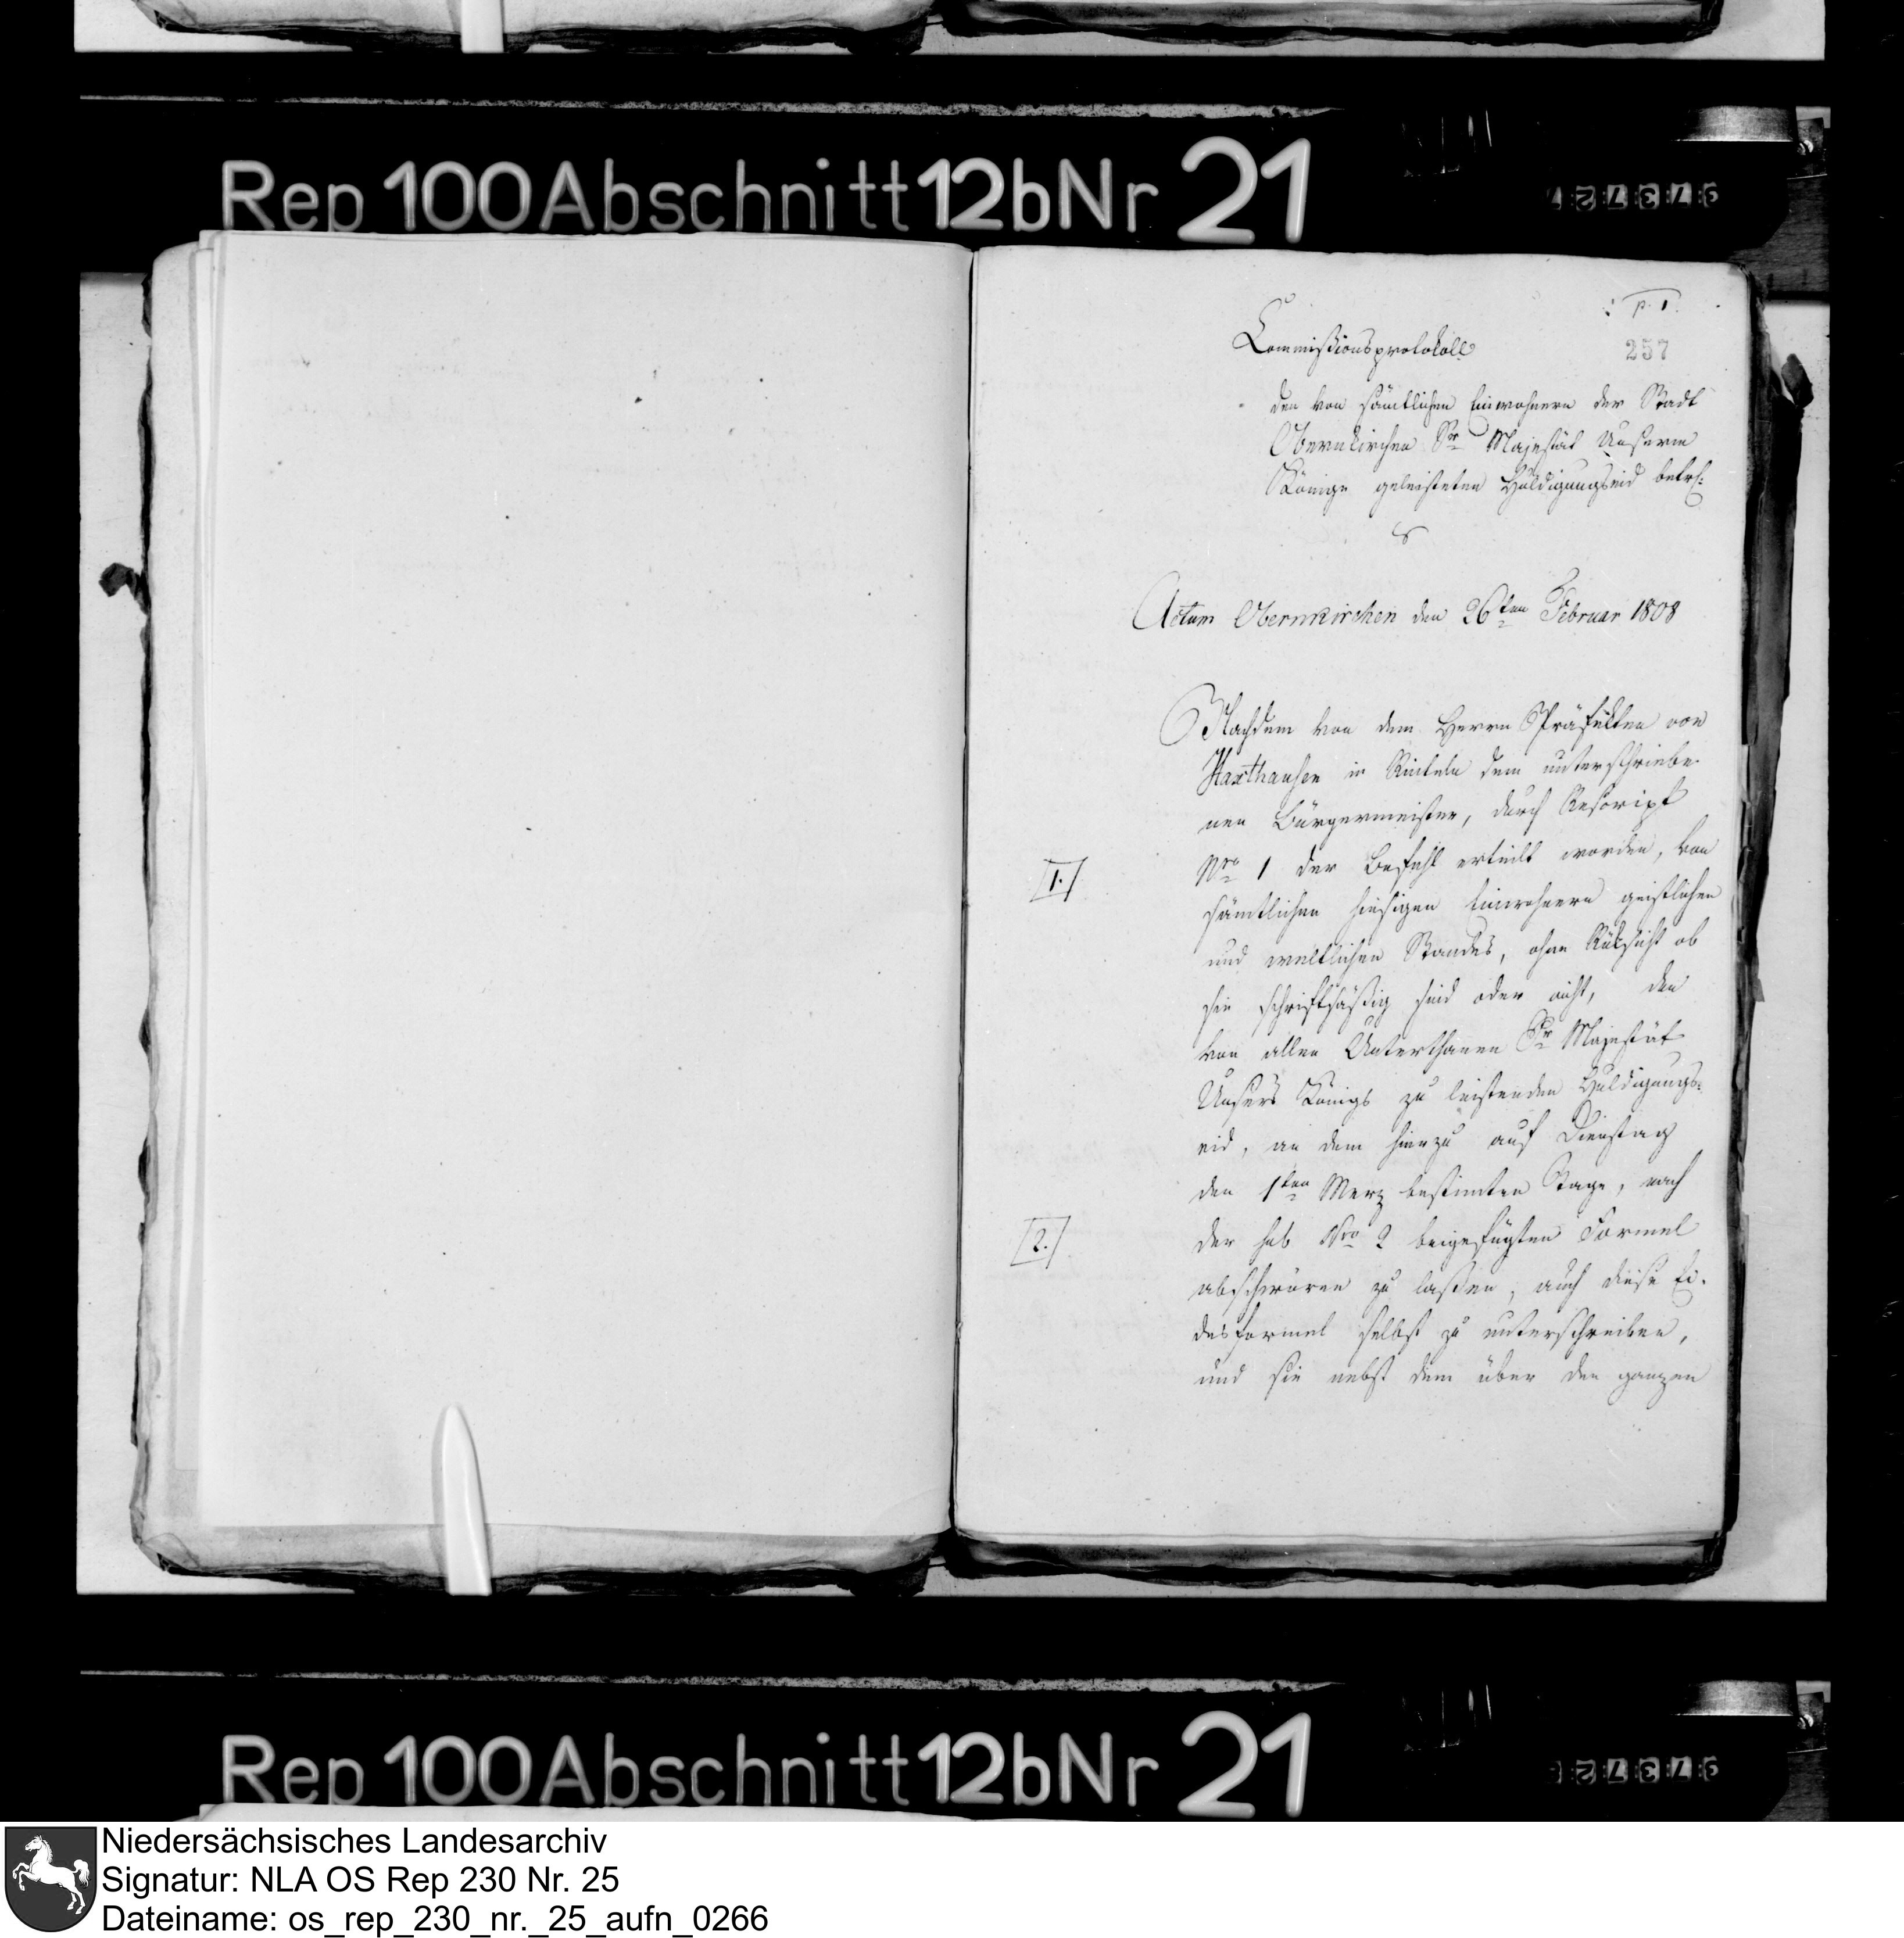 Rep 100 Abschnitt 12b Nr 21
p. 1.
257
Commißionsprotokoll
den von sämtlichen Einwohnern der Stadt
Obernkirchen Sr Majestät Unserm
Könige geleisteten Huldigungseid betrf:
Actum Obernkirchen den 26ten Februar 1808
Nachdem von dem Herrn Präfekten von
Haxthausen in Rinteln dem unterschriebe-
nen Bürgermeister, durch Rescript
1.
Nro 1 der Befehl erteilt worden, von
sämtlichen hiesigen Einwohnern geistlichen
und weltlichen Standes, ohne Rüksicht ob
sie schriftsäßig sind oder nicht, den
von allen Unterthanen Sr Majestät
Unsers Königs zu leistenden Huldigungs-
eid, an dem hierzu auf Dienstag
den 1ten Merz bestimten Tage, nach
2.
der sub Nro 2 beigefügten Formel
abschwören zu laßen, auch diese Ei-
desformel selbst zu unterschreiben,
und sie nebst dem über den ganzen
Rep 100 Abschnitt 12b Nr 21
Niedersächsisches Landesarchiv
Signatur: NLA OS Rep 230 Nr. 25
Dateiname: os_rep_230_nr._25_aufn_0266